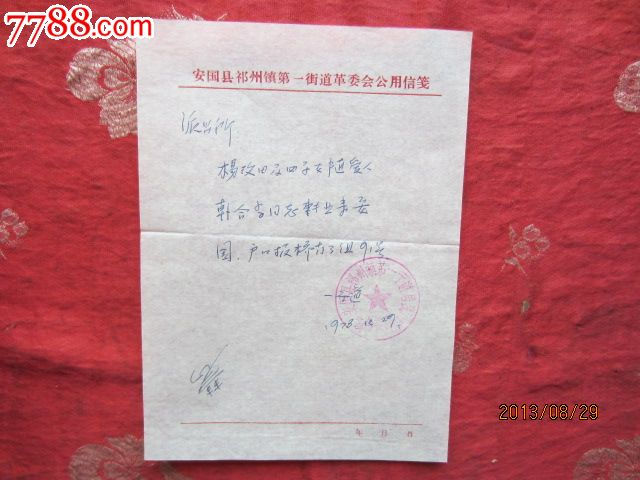 7788.com
安国县祁州镇第一街道革委会公用信笺
派出所
杨改田及四子女随爱人
韩合 同志转业来安
国.户口报桥 3组91号
一街道
1978.12.29.
年 月 日
2013/08/29